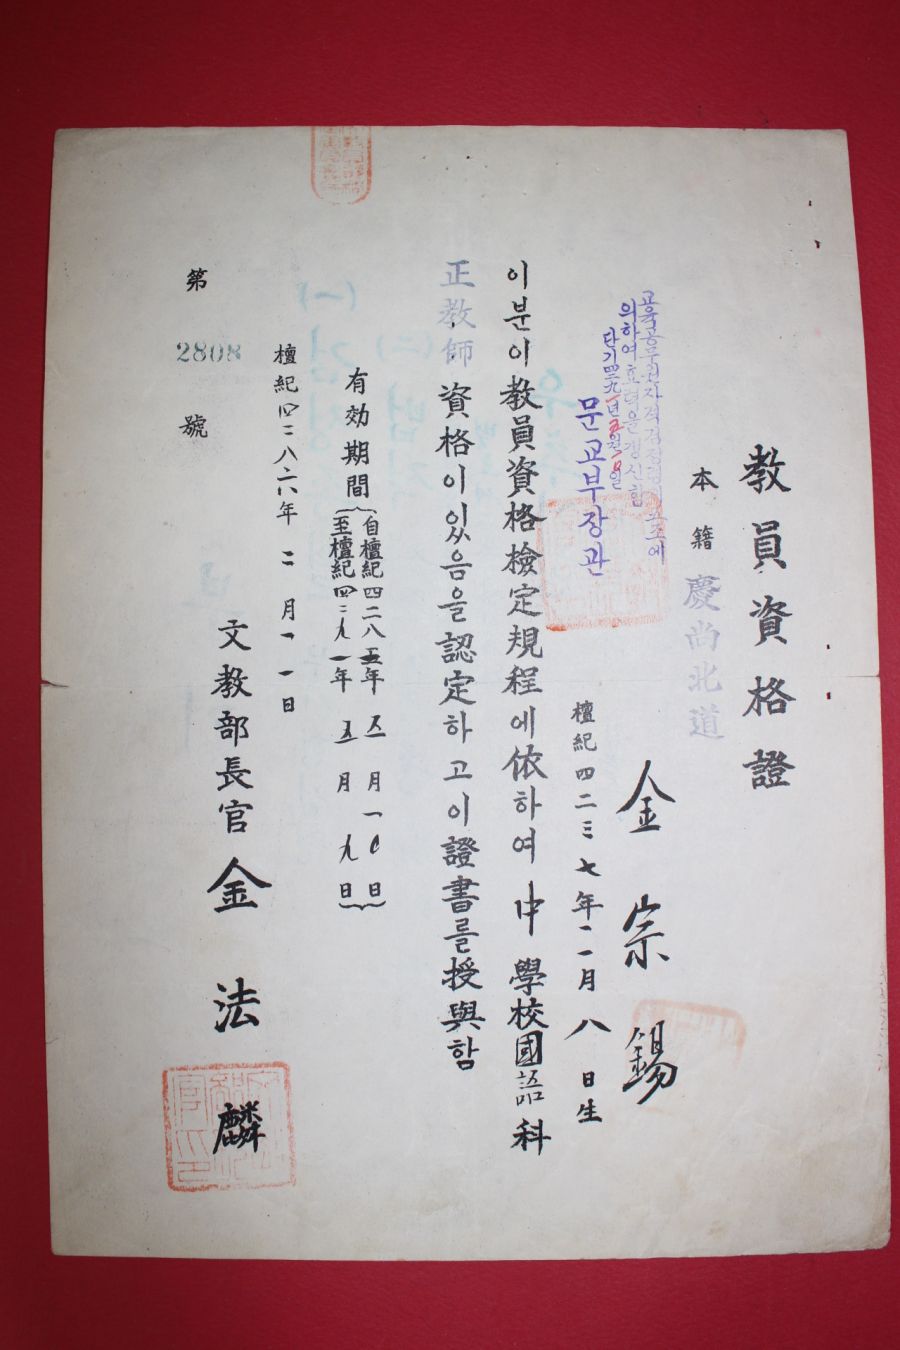 教員資格證
本籍 慶尚北道
金宗錫
檀紀四二三七年二一月八日生
교육공무원자격검정령
의하여 효력을 갱신함
문교부장관
이분이 教員資格檢定規程에依하여 中學校國語科
正教師 資格이있음을認定하고이證書를授與함
有効期間
自檀紀四二八五年五月一0日
至檀紀四二九一年五月九日
檀紀四二八六年二月一一日
文教部長官 金法麟
第 2808 號